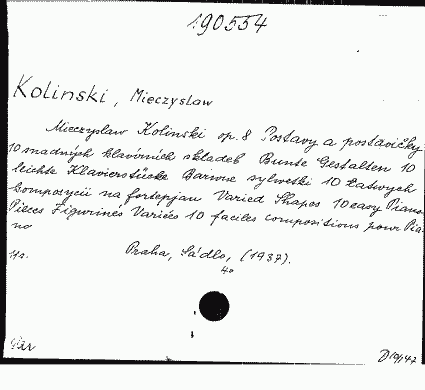 190554
Kolinski, Mieczyslaw
Mieczyslaw Kolinski op. 8 Postavy a postavičky
10 snadných klavírních skladeb Bunte Gestalten 10
leichte Klavierstücke Barwne sylwetki 10 Łatwych
kompozycii na fortepjan Varied Shapes 10 easy Piano
Pièces Figurines Variées 10 faciles compositions pour Pia-
no
Praha, Sádlo, (1937).
4o
D19/47